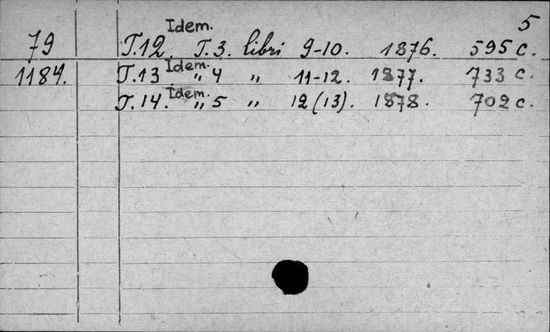 5
Idem.
79 Т.12. Т.3. libri 9-10. 1876. 595 с.
1184. Т.13 Idem. „ 4 „ 11-12. 1877. 733 с.
Т.14. Idem. „ 5 „ 12 (13). 1878. 702 с.